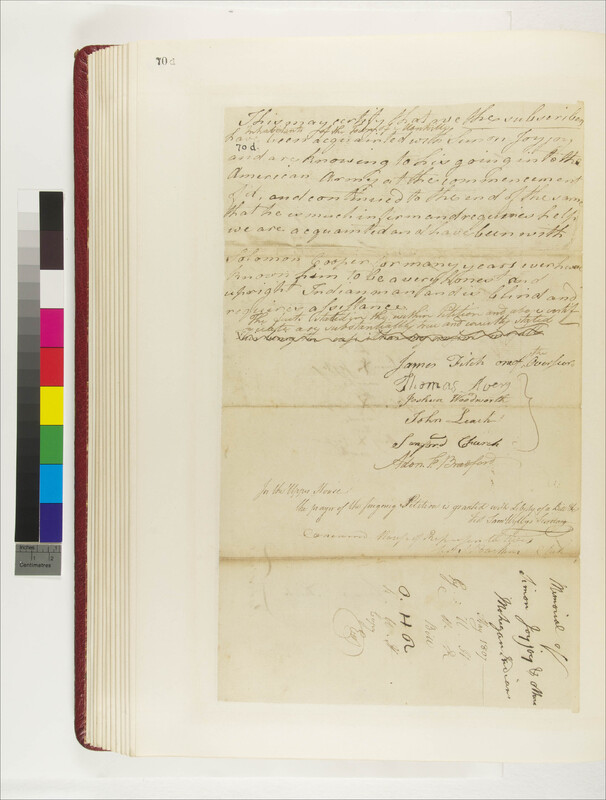 70 d
This may certify that we the subscribers
inhabitants of the town of
70 d.
have been acquainted with Simon Joyjoy
and are knowing to his going in to the
American Army at the commencement
of it, and continued to the end of the same
that he is much infirm and requires help
we are acquainted and have been with
Solomon Cooper for many years & we have
known him to be a very honest and
upright Indian man and is blind and
requires assistance
The facts stated in the within petition and above certificate
are substantially true and correctly stated
James Fitch one of the Overseers
Thomas Avery
Joshua Woodworth
John Leach
Sanford Church
Adon E Bradford
In the Upper House
the prayer of the foregoing Petition is granted with Liberty of a Bill &c
Test Sam Wyllys Secretary
Concurred House of Representatives
Clerk
Memorial of
Simon Joyjoy & others
Mohegan Indians
May 1807
Bill
O. H R
Inches
Centimetres